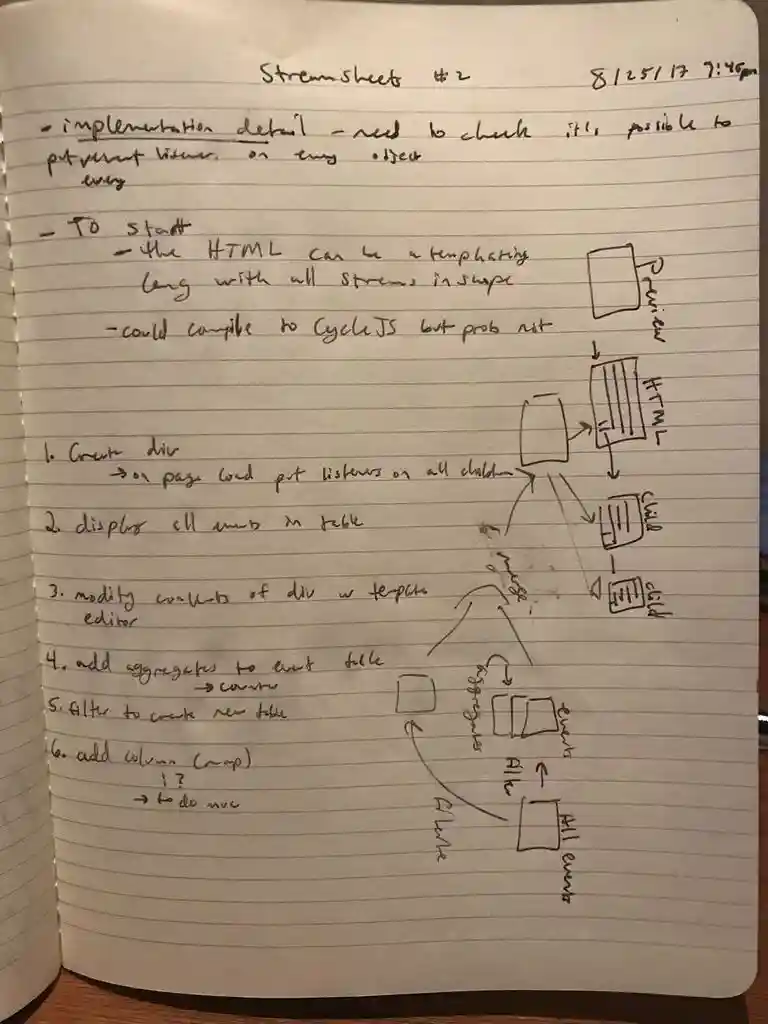 Streamsheets #2 8/25/17 7:45pm
- implementation detail - need to check it's possible to
put event listener on every object
every
- To start
- the HTML can be a templating
lang with all streams in scope
- could compile to CycleJS but prob not
1. Create div
→ on page load put listeners on all children
2. display all events in table
3. modify contents of div w template
editor
4. add aggregates to event table
→ counter
5. filter to create new table
6. add column (map)
1?
→ to do
Preview
HTML
child
child
merge
aggregates
events
filter
filter
All events